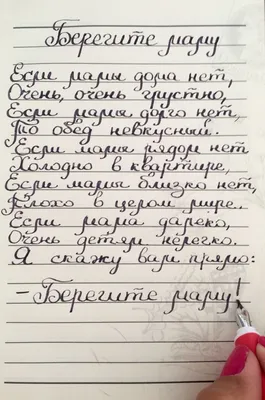 Берегите маму
Если мамы дома нет,
Очень, очень грустно,
Если мамы долго нет,
То обед невкусный.
Если мамы рядом нет
Холодно в квартире,
Если мамы близко нет,
Плохо в целом мире.
Если мама далеко,
Очень детям нелегко.
Я скажу вам прямо:
- Берегите маму!